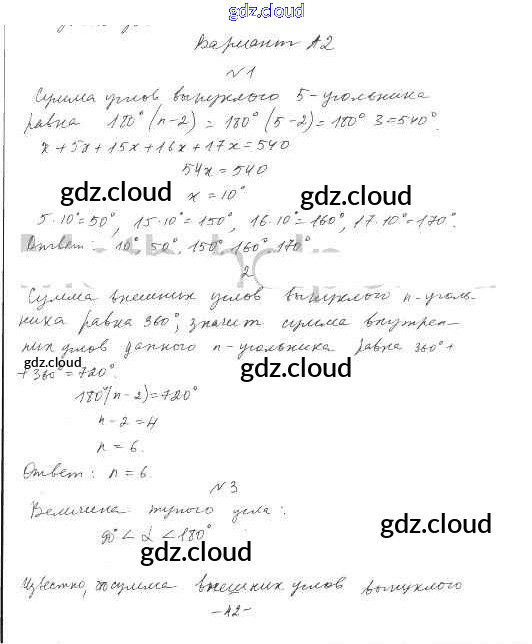 gdz.cloud
Вариант А2
№1
Сумма углов выпуклого 5-угольника
равна 180°(n-2) = 180°(5-2) = 180° 3 = 540°.
x+5x+15x+16x+17x=540
54x=540
gdz.cloud x = 10° gdz.cloud
5·10°=50°, 15·10°=150°, 16·10°=160°, 17·10°=170°.
Ответ: 10° 50° 150° 160° 170°
2
Сумма внешних углов выпуклого n-уголь-
ника равна 360°, значит сумма внутрен-
них углов данного n-угольника равна 360°+
+360°=720°.
gdz.cloud gdz.cloud
180°(n-2)=720°
n-2=4
n=6.
Ответ: n=6.
№3
Величина тупого угла:
90° < α < 180°
gdz.cloud
gdz.cloud
Известно, что сумма внешних углов выпуклого
-42-